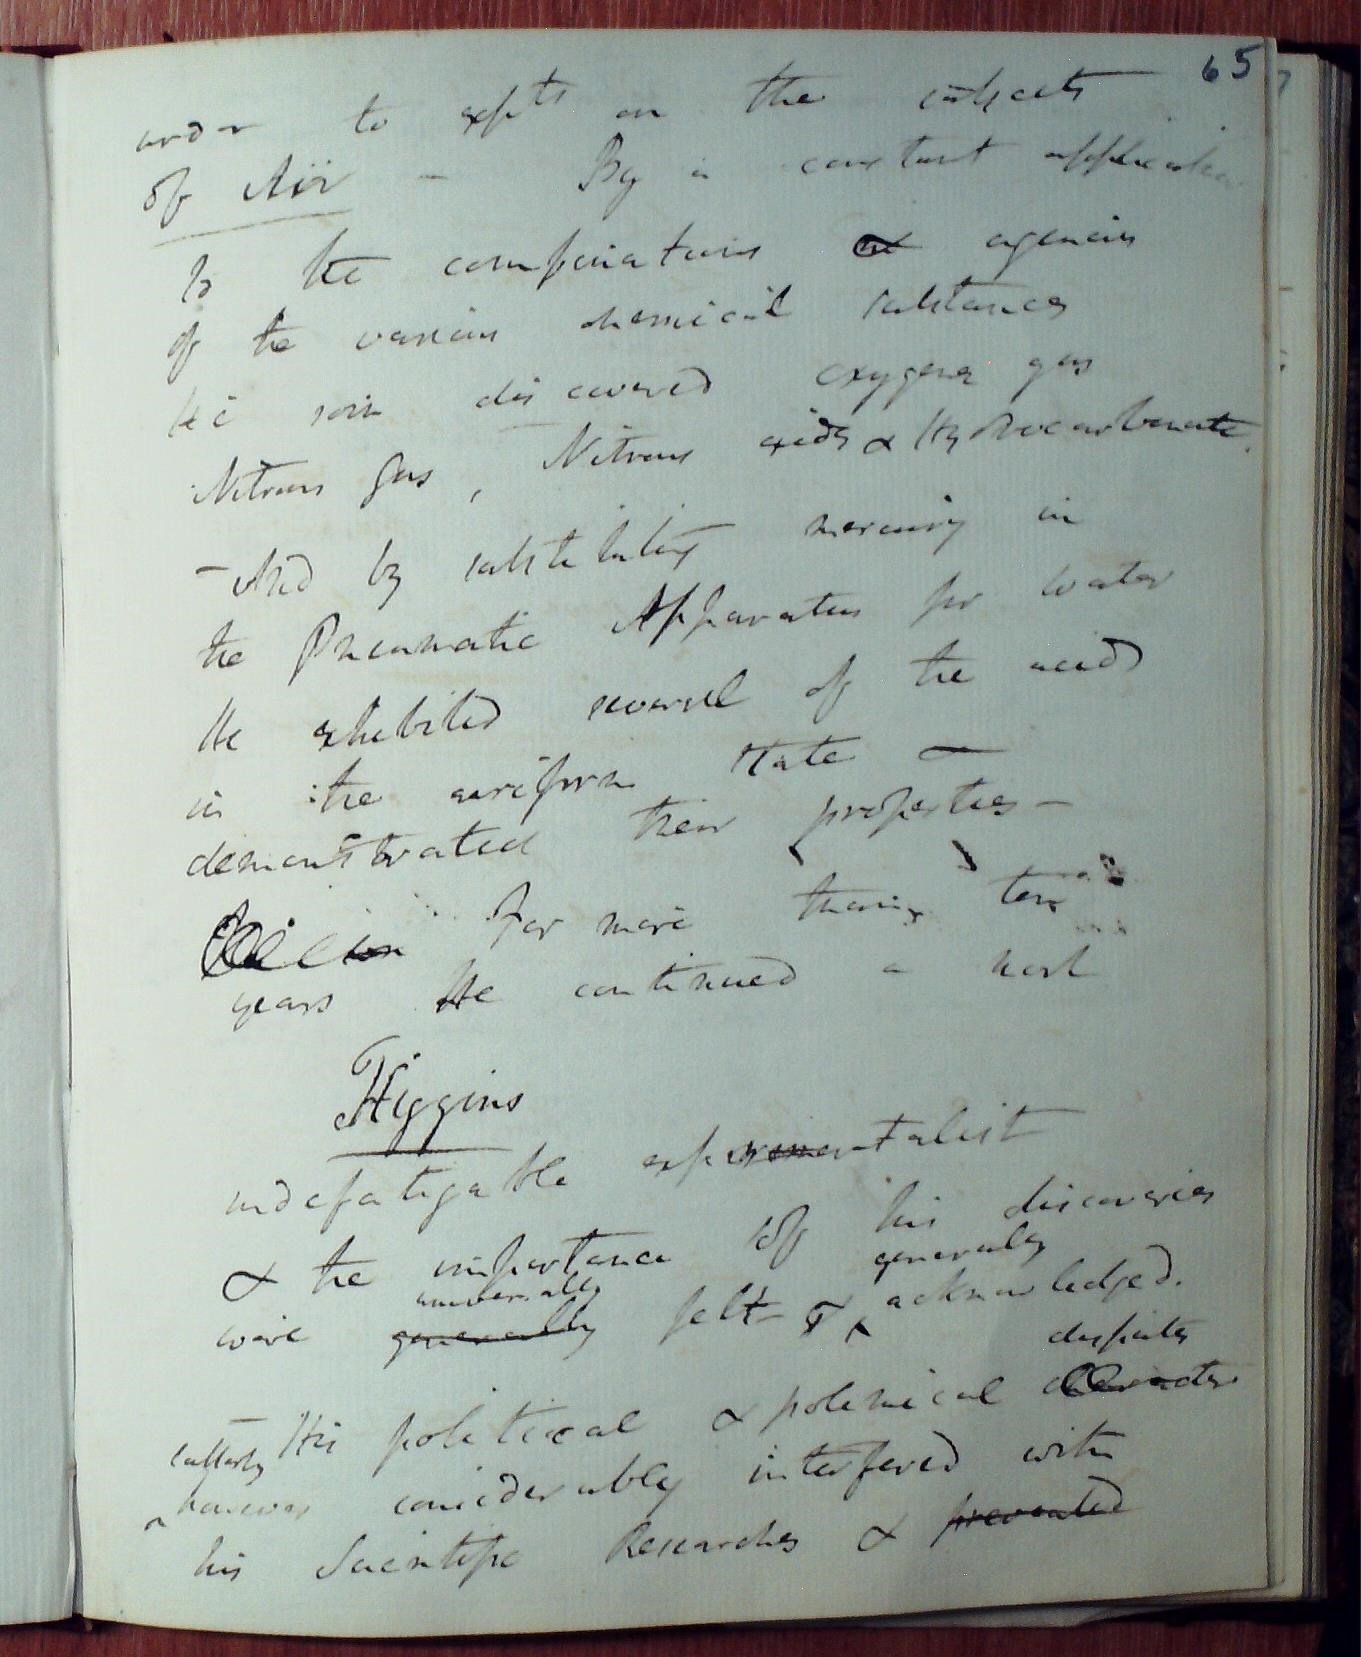 65
order to expts on the subjects
of Air – By a constant application
to the comparisons & agencies
of the various chemical substances
He soon discovered oxygene gas
Nitrous gas, Nitrous oxide & Hydrocarbonate.
– And by substituting mercury in
the Pneumatic Apparatus for water
He exhibited several of the acids
in the aeriform state &
demonstrated their properties –
For more than ten
years He continued a most
Higgins
indefatigable experimentalist
& the importance of his discoveries
universally generally
were generally felt & acknowledged.
disputes
His political & polemical character
latterly
however considerably interfered with
his Scientific Researches & prevented